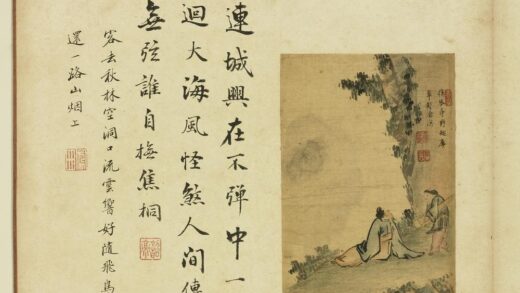 連城興在不彈中一
迴大海風怪煞人間傳
無弦誰自撫焦桐
客去秋林空洞口流雲響好隨飛鳥
還一路山烟上